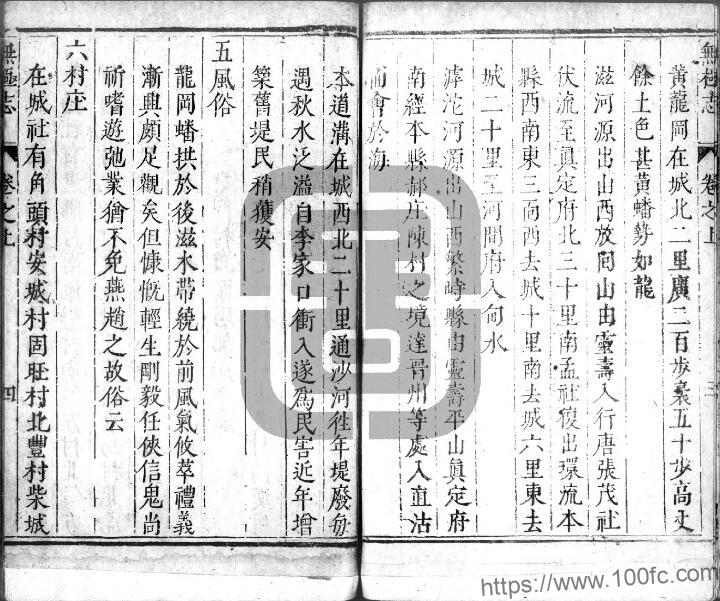 無極志
卷之上
三
黃龍岡在城北二里廣二百步袤五十步高丈
餘土色甚黃蟠勢如龍
滋河源出山西枚囘山由靈壽入行唐張茂社
伏流至真定府北三十里南孟社復出環流本
縣西南東三面西去城十里南去城六里東去
城二十里至河間府入甸水
滹沱河源出山西繁峙縣由靈壽平山真定府
南經本縣郝庄陳村之境達晋州等處入直沽
而會於海
本道溝在城西北二十里通沙河徃年堤廢每
遇秋水泛溢自李家口衝入遂為民害近年增
築舊堤民稍獲安
五風俗
龍岡蟠拱於後滋水帶繞於前風氣攸萃禮義
漸興頗足觀矣但慷慨輕生剛毅任俠信鬼尚
祈嗜遊弛業猶不免燕趙之故俗云
六村庄
在城社有角頭村安城村固旺村北豐村柴城
無極志
卷之上
四
https://www.100fc.com